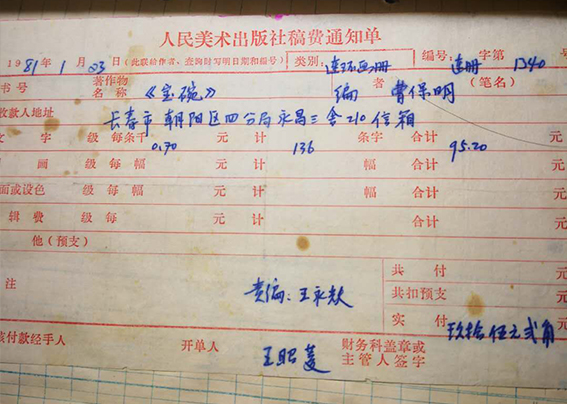 人民美术出版社稿费通知单
1981年1月23日(此联给作者、查询时写明日期和编号) 类别: 连环画册 编号: 连册字第1340
书号 著作物名称 《宝碗》 编者(笔名) 曹保明
收款人地址 长春市朝阳区四分局永昌三舍210信箱
文字 级每条千 0.70 元计 136 条字 合计 95.20 元
画 级每幅 元计 幅 合计 元
面或设色 级每幅 元计 幅 合计 元
辑费 级每 元计 合计 元
他(预支)
注 责编:王永
共付 元
共扣预支 元
实付 玖拾伍元贰角
该付款经手人 开单人 王昭 财务科盖章或主管人签字